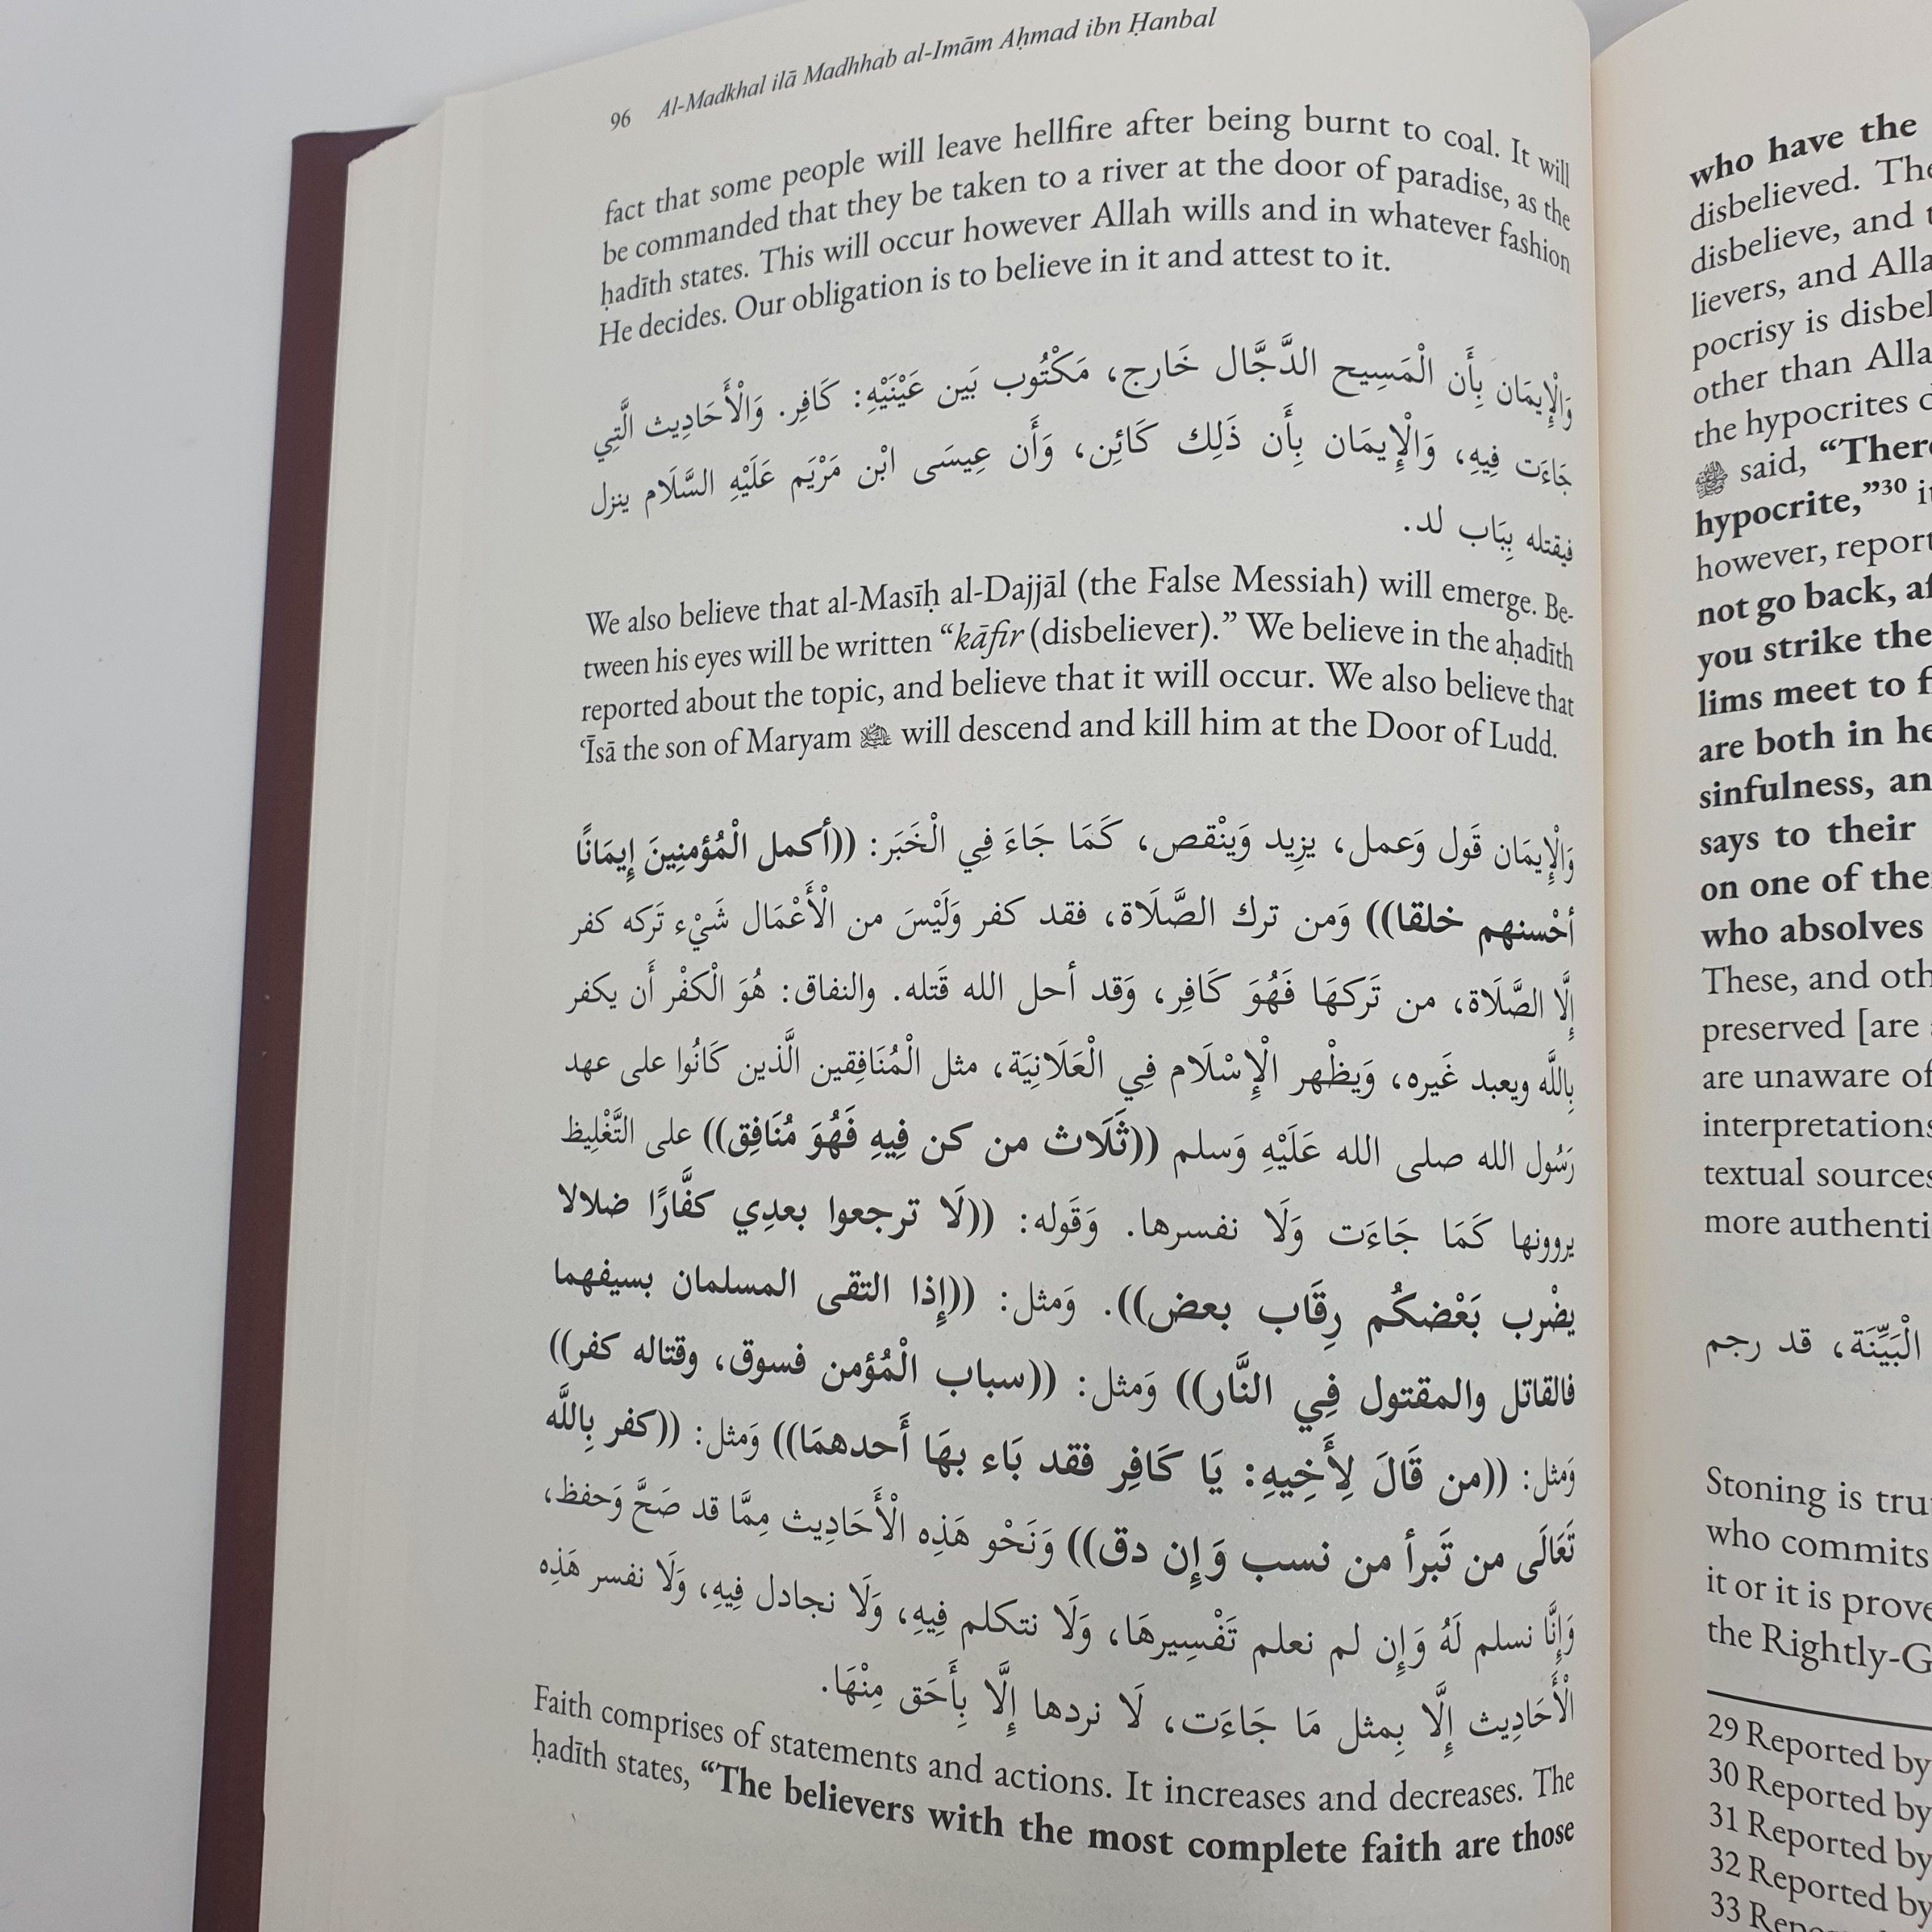 96 Al-Madkhal ilā Madhhab al-Imām Aḥmad ibn Ḥanbal
fact that some people will leave hellfire after being burnt to coal. It will
be commanded that they be taken to a river at the door of paradise, as the
ḥadīth states. This will occur however Allah wills and in whatever fashion
He decides. Our obligation is to believe in it and attest to it.
وَالْإِيمَان بِأَن الْمَسِيح الدَّجَّال خَارج، مَكْتُوب بَين عَيْنَيْهِ: كَافِر. وَالْأَحَادِيث الَّتِي
جَاءَت فِيهِ، وَالْإِيمَان بِأَن ذَلِك كَائِن، وَأَن عِيسَى ابْن مَرْيَم عَلَيْهِ السَّلَام ينزل
فيقتله بِبَاب لد.
We also believe that al-Masīḥ al-Dajjāl (the False Messiah) will emerge. Be-
tween his eyes will be written “kāfir (disbeliever).” We believe in the aḥadīth
reported about the topic, and believe that it will occur. We also believe that
ʿĪsā the son of Maryam will descend and kill him at the Door of Ludd.
وَالْإِيمَان قَول وَعمل، يزِيد وَينْقص، كَمَا جَاءَ فِي الْخَبَر: ((أكمل الْمُؤمنِينَ إِيمَانًا
أحْسنهم خلقا)) وَمن ترك الصَّلَاة، فقد كفر وَلَيْسَ من الْأَعْمَال شَيْء تَركه كفر
إِلَّا الصَّلَاة، من تَركهَا فَهُوَ كَافِر، وَقد أحل الله قَتله. والنفاق: هُوَ الْكفْر أَن يكفر
بِاللَّه ويعبد غَيره، وَيظْهر الْإِسْلَام فِي الْعَلَانِيَة، مثل الْمُنَافِقين الَّذين كَانُوا على عهد
رَسُول الله صلى الله عَلَيْهِ وَسلم ((ثَلَاث من كن فِيهِ فَهُوَ مُنَافِق)) على التَّغْلِيظ
يروونها كَمَا جَاءَت وَلَا نفسرها. وَقَوله: ((لَا ترجعوا بعدِي كفَّارًا ضلالا
يضْرب بَعْضكُم رِقَاب بعض)). وَمثل: ((إِذا التقى المسلمان بسيفهما
فالقاتل والمقتول فِي النَّار)) وَمثل: ((سباب الْمُؤمن فسوق، وقتاله كفر))
وَمثل: ((من قَالَ لِأَخِيهِ: يَا كَافِر فقد بَاء بهَا أَحدهمَا)) وَمثل: ((كفر بِاللَّه
تَعَالَى من تَبرأ من نسب وَإِن دق)) وَنَحْو هَذِه الْأَحَادِيث مِمَّا قد صَحَّ وَحفظ،
وَإِنَّا نسلم لَهُ وَإِن لم نعلم تَفْسِيرهَا، وَلَا نتكلم فِيهِ، وَلَا نجادل فِيهِ، وَلَا نفسر هَذِه
الْأَحَادِيث إِلَّا بِمثل مَا جَاءَت، لَا نردها إِلَّا بِأَحَق مِنْهَا.
Faith comprises of statements and actions. It increases and decreases. The
ḥadīth states, “The believers with the most complete faith are those
who have the
disbelieved. The
disbelieve, and
lievers, and Alla
pocrisy is disbel
other than Alla
the hypocrites
ﷺ said, “There
hypocrite,”³⁰
however, report
not go back, af
you strike the
lims meet to
are both in he
sinfulness, an
says to their
on one of the
who absolves
These, and oth
preserved [are
are unaware of
interpretations
textual sources
more authenti
الْبَيِّنَة، قد رجم
Stoning is tru
who commits
it or it is prove
the Rightly-G
29 Reported by
30 Reported by
31 Reported by
32 Reported by
33 Repo